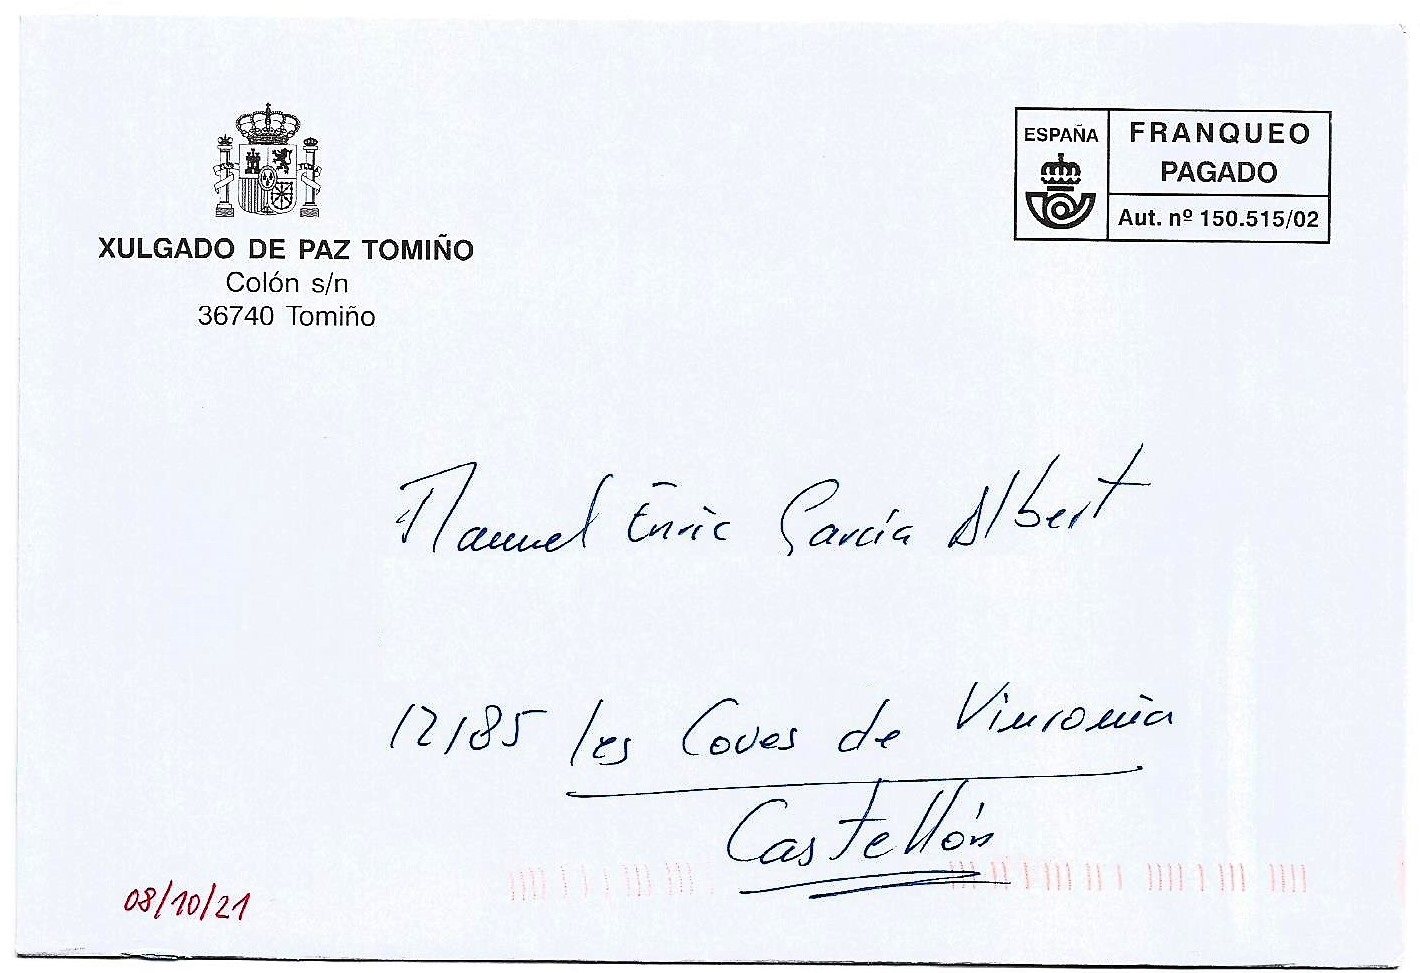 XULGADO DE PAZ TOMIÑO
Colón s/n
36740 Tomiño
ESPAÑA
FRANQUEO
PAGADO
Aut. nº 150.515/02
Manuel Enric García Albert
12185 les Coves de Vinromía
Castellón
08/10/21